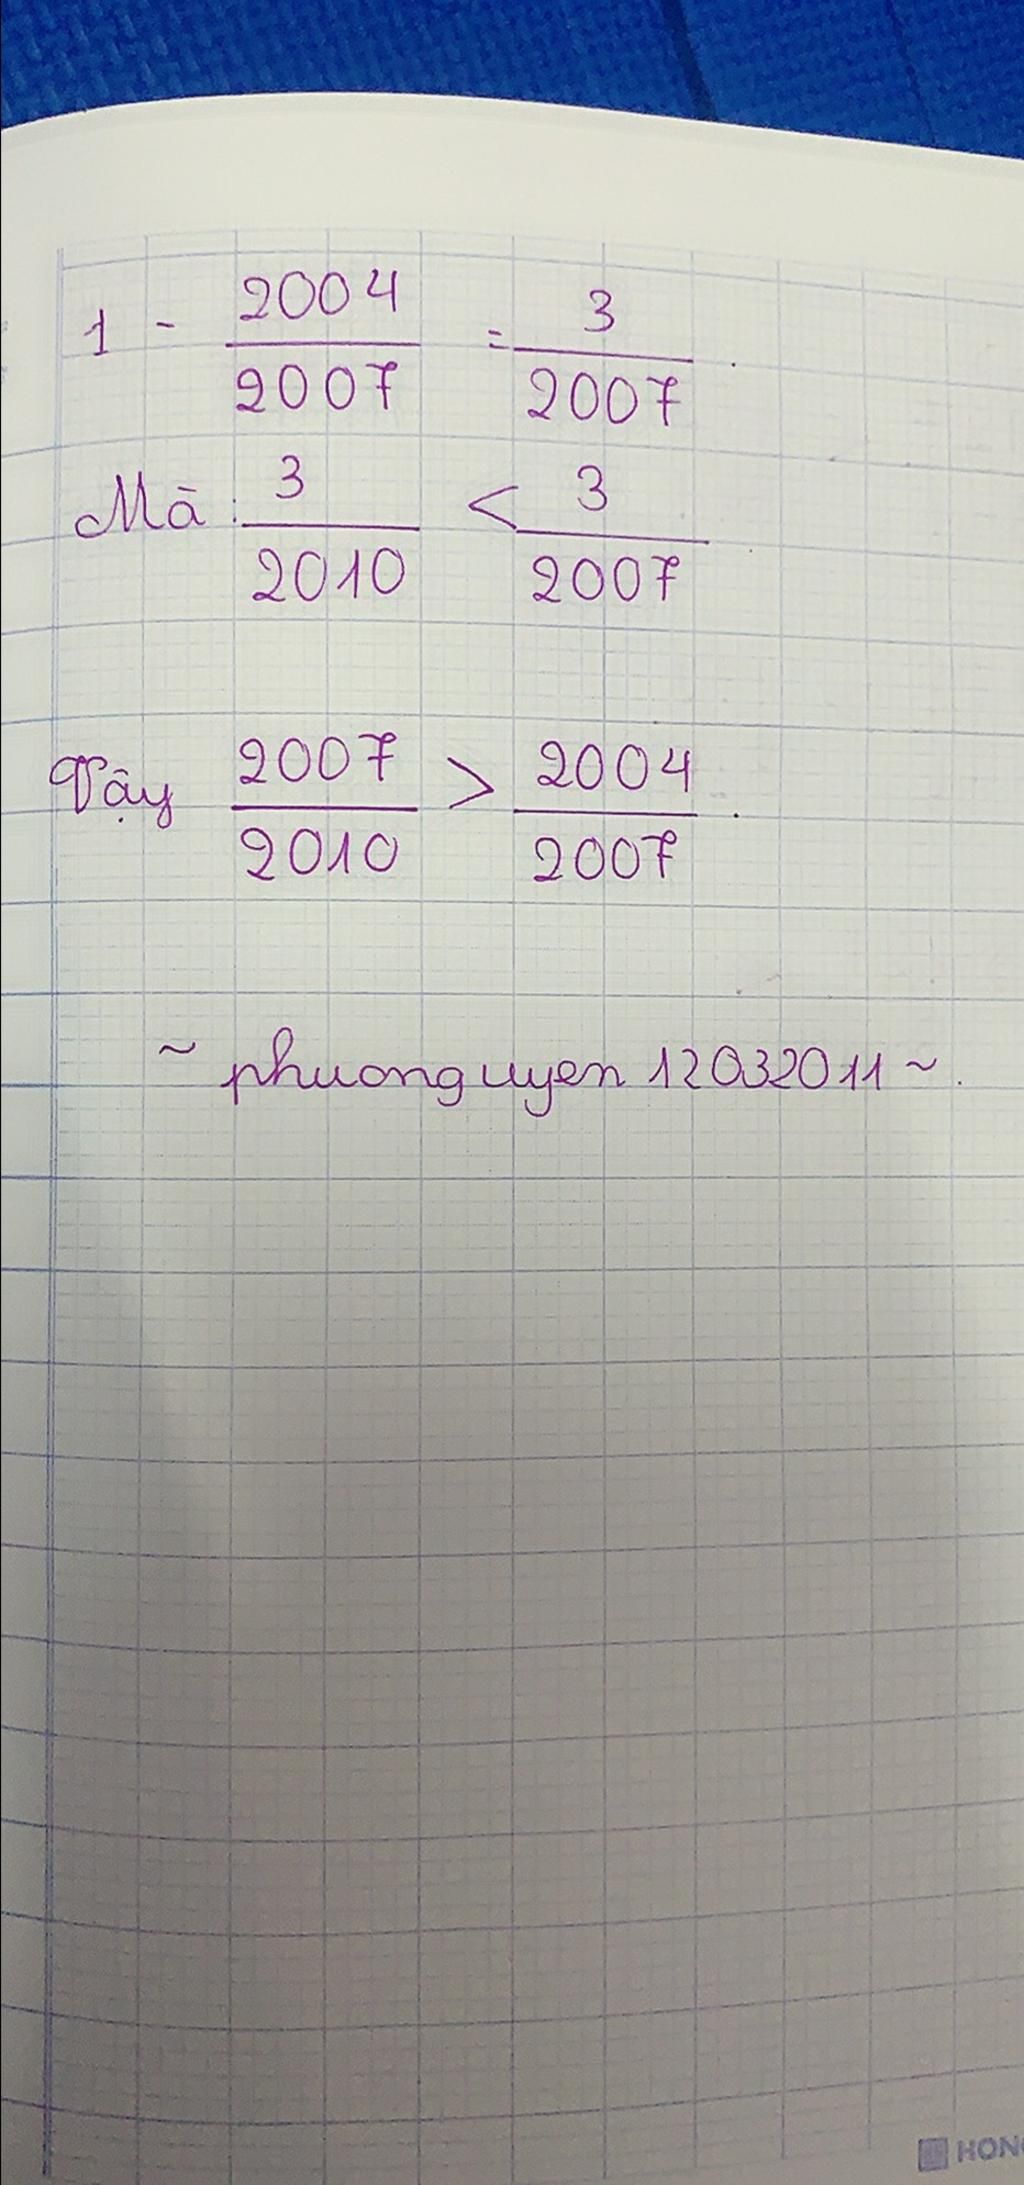 1 - 2004/2007 = 3/2007.
Mà: 3/2010 < 3/2007
Vậy 2007/2010 > 2004/2007.
~ phuonguyen 12032011 ~.